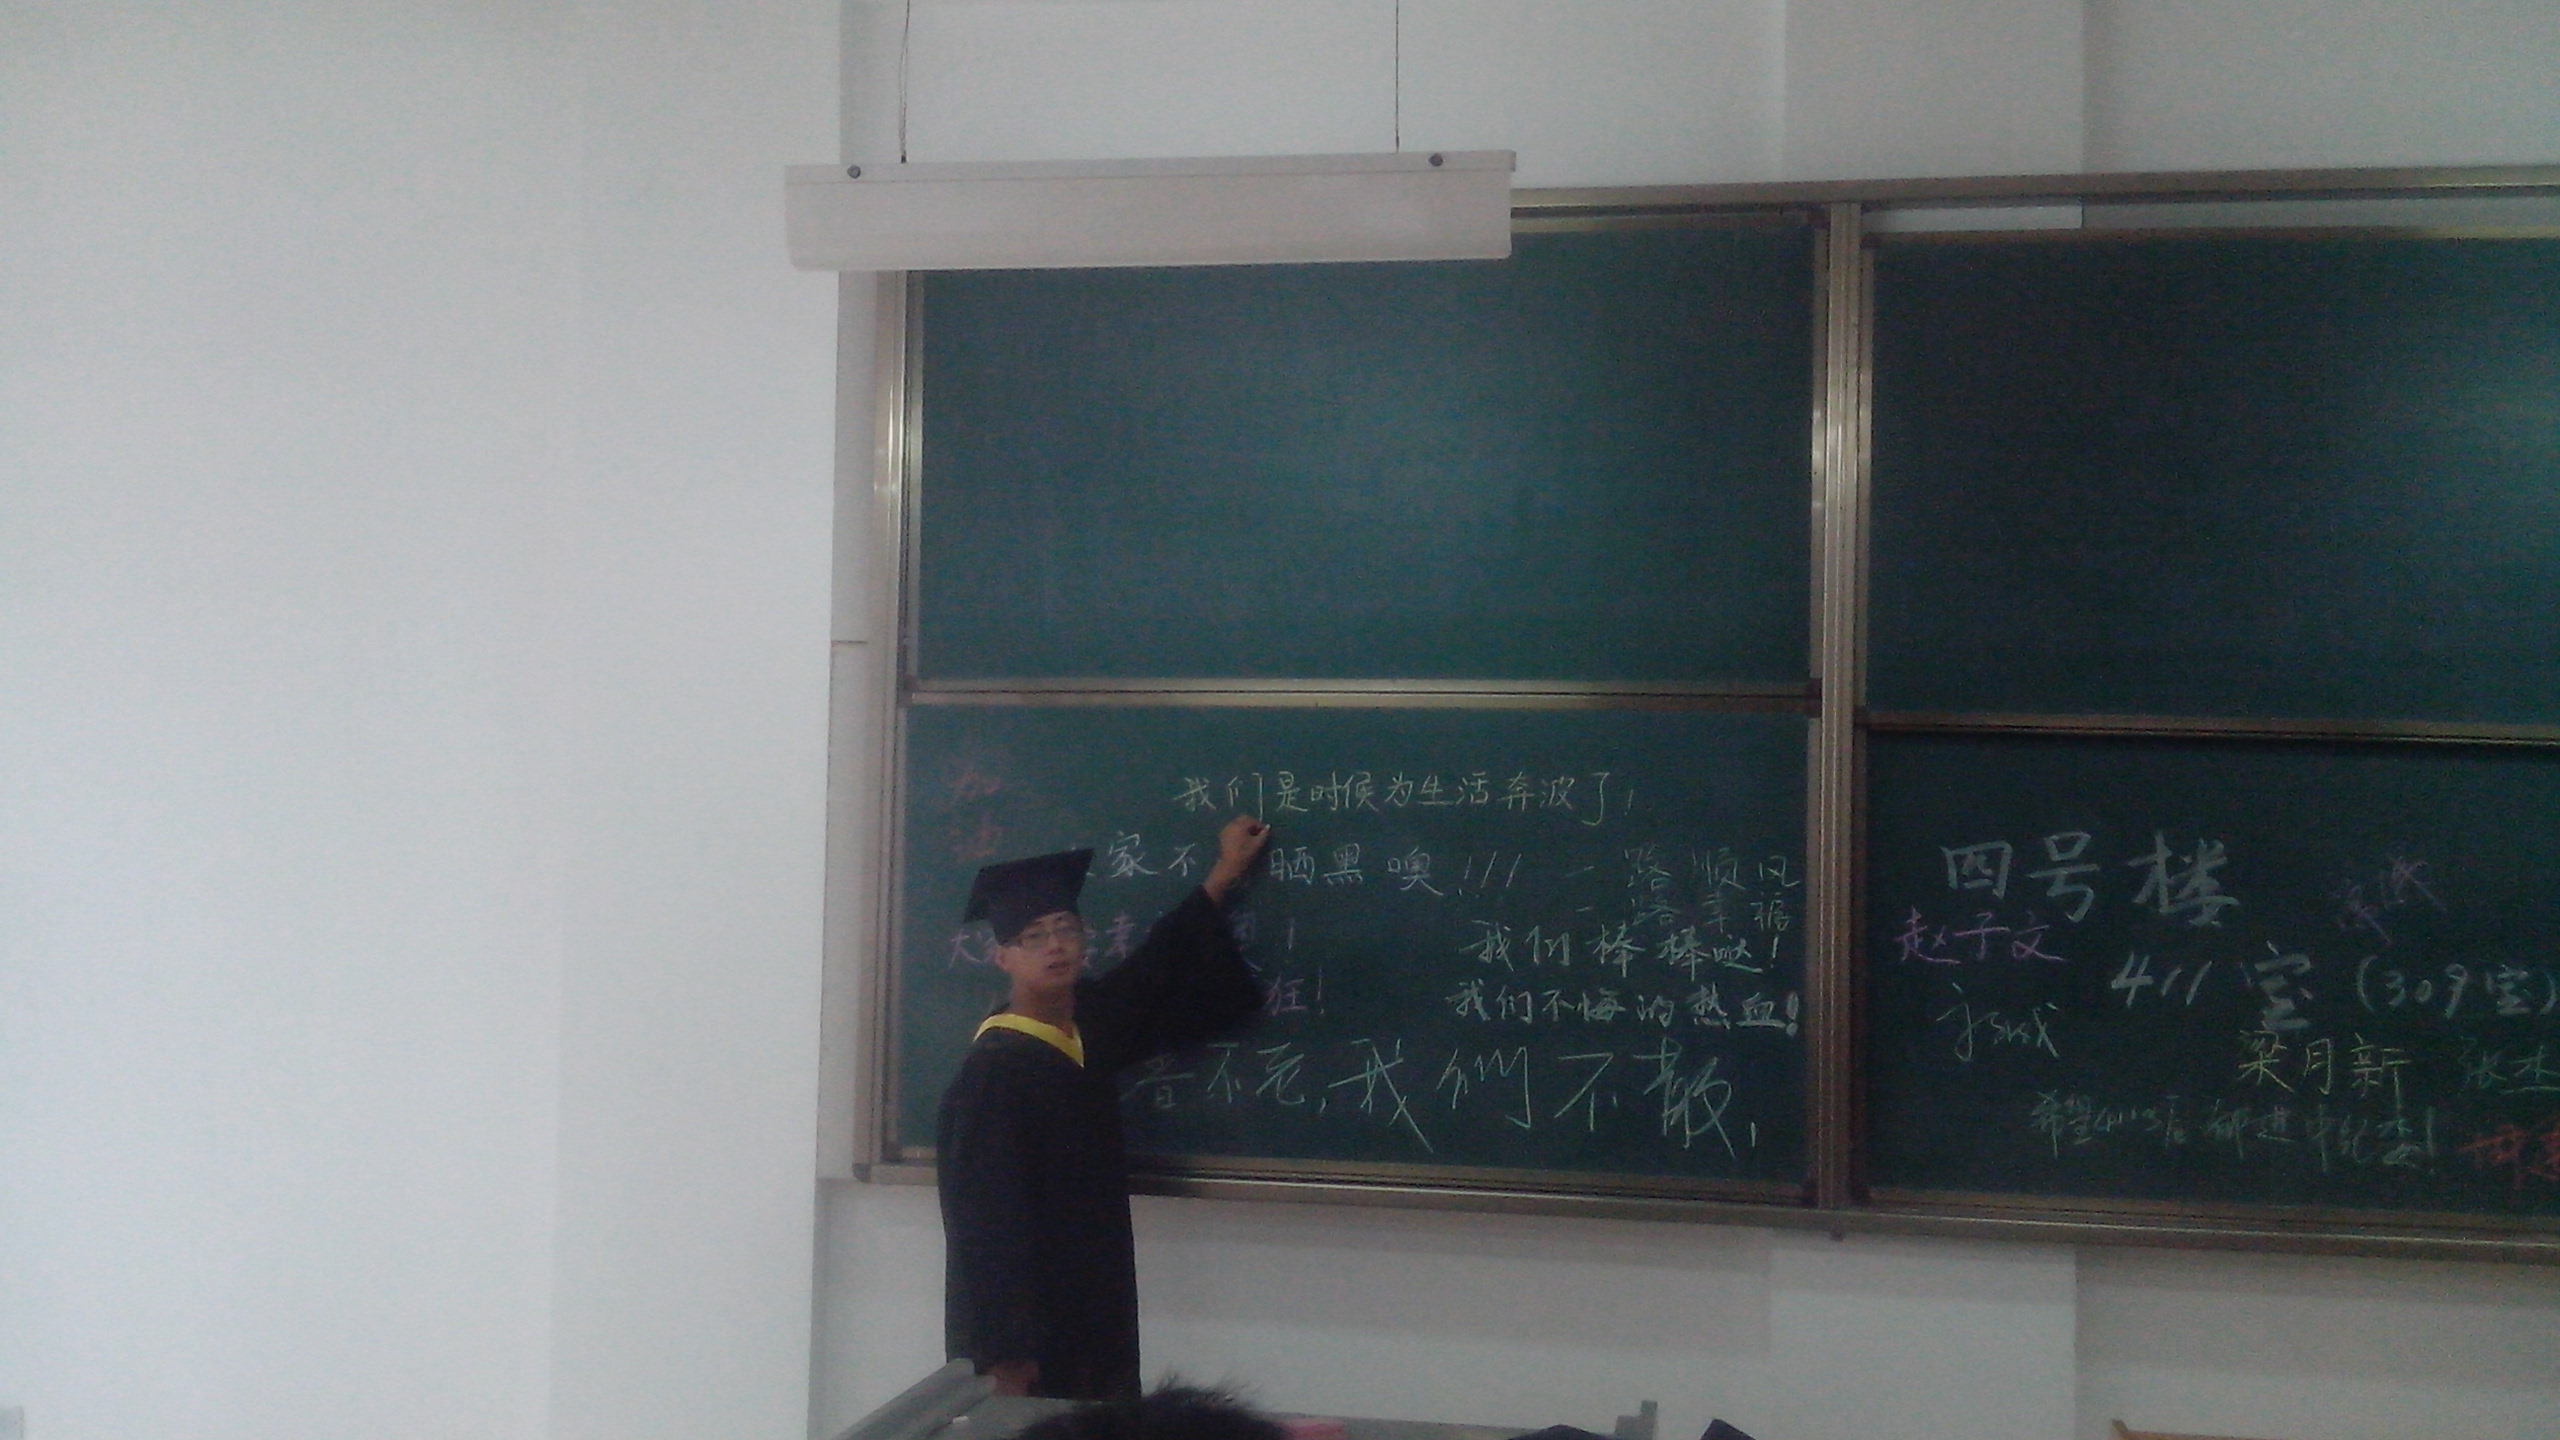 加
油
我们是时候为生活奔波了!
家不 晒黑噢!!!
一路顺风
一路幸福
大家 幸 !
我们棒棒哒!
狂!
我们不悔的热血!
不老,我們不散!
四号楼
赵子文
411室(309室)
梁月新 张
希望 后都进中纪委!